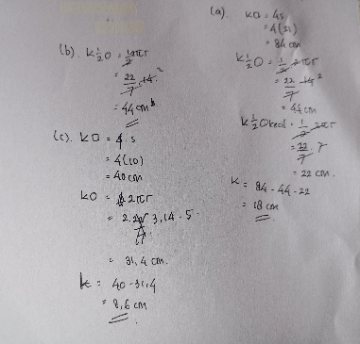 (a). K□ = 4s
= 4(21)
= 84 cm
K½O = ½ 2πr
= 22/7 . 14²
= 44 cm
K½O kecil = ½ 2πr
= 22/7 . 7
= 22 cm.
K = 84 - 44 - 22
= 18 cm
(b). K½O = ½ 2πr
= 22/7 . 14²
= 44 cm
(c). K□ = 4.s
= 4(10)
= 40 cm
KO = 2πr
= 2. 3,14 . 5
= 31,4 cm.
K = 40 - 31,4
= 8,6 cm